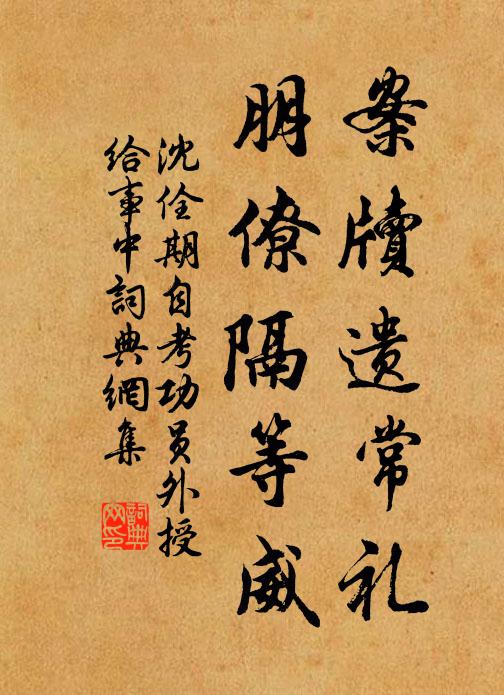 案牍遗常礼
朋僚隔等威
沈佺期自考功员外授
给事中词典網集
詞典
网印